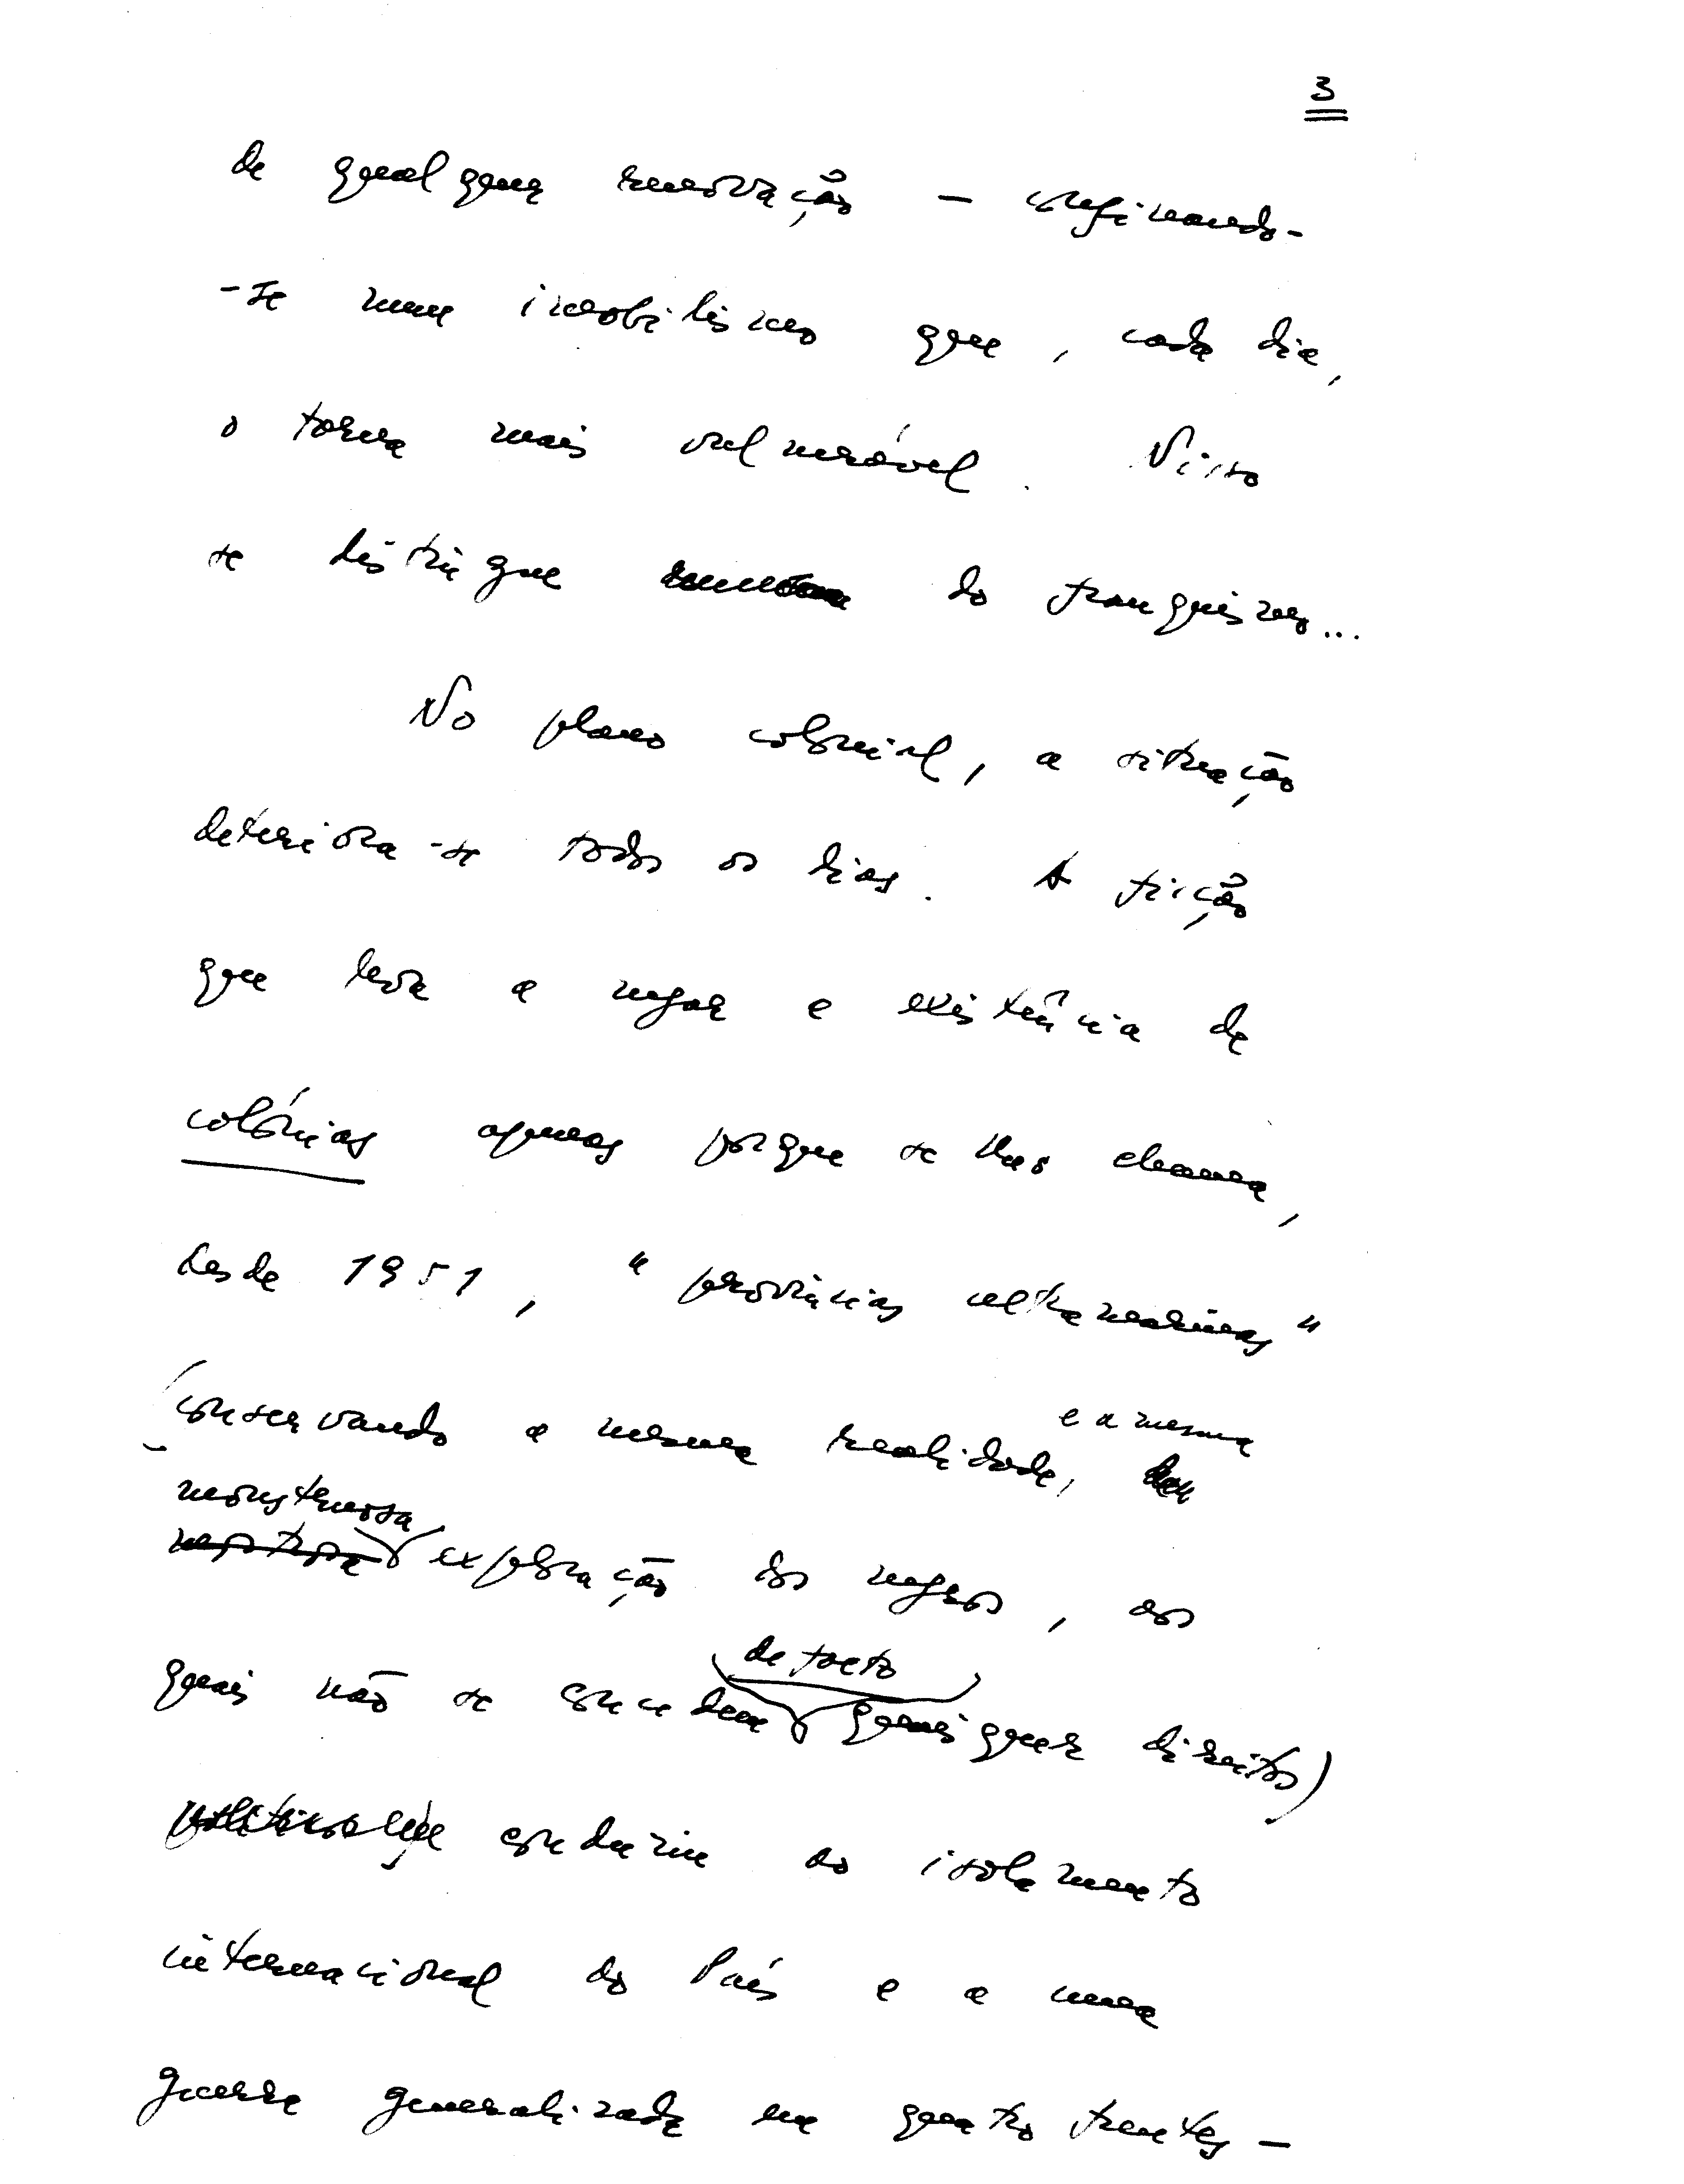 3
de qualquer renovação – confinando-
-se num imobilismo que, cada dia,
o torna mais vulnerável. Nisso
se distingue do franquismo...
No plano colonial, a situação
deteriora-se todos os dias. A ficção
que leva a negar a existência de
colónias apenas porque se lhes chama,
desde 1951, "províncias ultramarinas"
(conservando a mesma realidade, e a mesma
monstruosa exploração dos negros, aos
quais não se concedem de facto quaisquer direitos)
conduziu ao isolamento
internacional do País e a uma
guerra generalizada em quatro frentes –